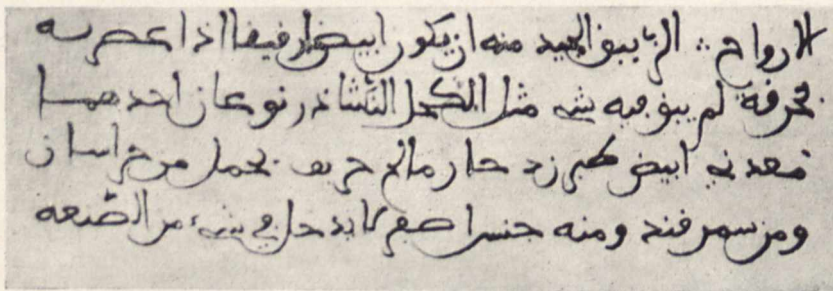 الارواح ∴ الزيبق الجيد منه ان يكون ابيض رقيقا اذا عصر به
خرقة لم يبق فيه شي مثل الكحل النشاذر نوعان احدهما
معدني ابيض طبرزد حار مالح حريف يحمل من خراسان
ومن سمرقند ومنه جنس اصفر لا يدخل في شيء من الصنعة